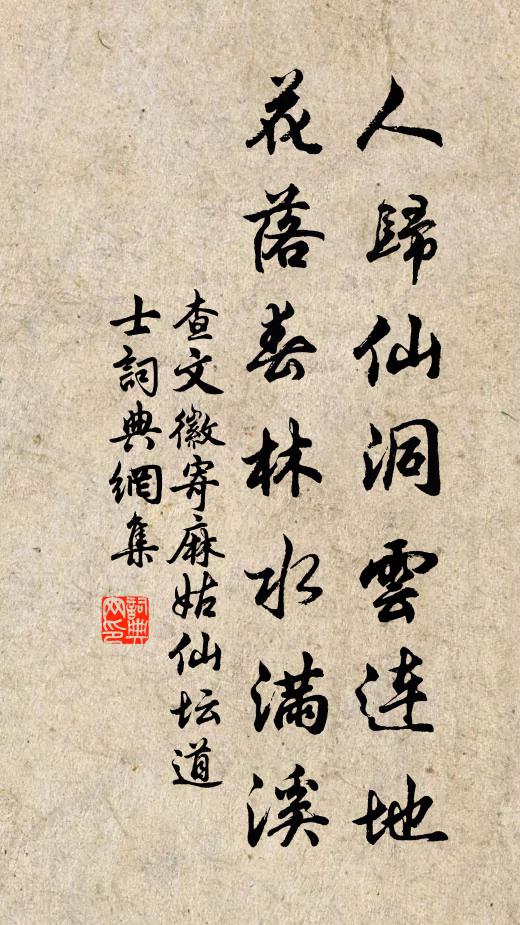 人歸仙洞雲連地
花落春林水滿溪
查文徽寄麻姑仙坛道
士詞典網集
詞典
网印